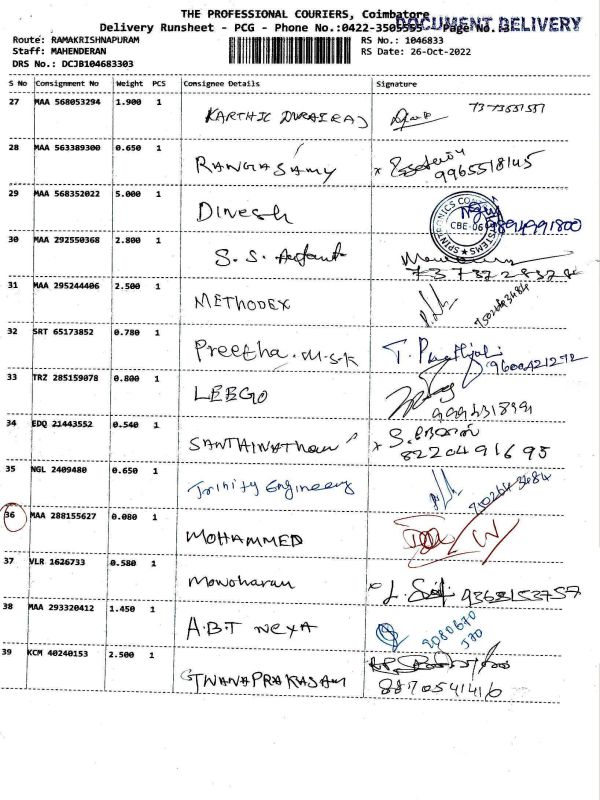 THE PROFESSIONAL COURIERS, Coimbatore
DOCUMENT DELIVERY
Delivery Runsheet - PCG - Phone No.:0422-3505555 - Page No.:3
Route: RAMAKRISHNAPURAM RS No.: 1046833
Staff: MAHENDERAN RS Date: 26-Oct-2022
DRS No.: DCJB104683303
S No Consignment No Weight PCS Consignee Details Signature
27 MAA 568053294 1.900 1 KARTHIC DURAIRAJ
28 MAA 563389300 0.650 1 RANGASAMY 9965518145
29 MAA 568352022 5.000 1 DINESH 9894991800
SPINTRONICS CONTROL SYSTEMS CBE-06
30 MAA 292550368 2.800 1 S.S.
31 MAA 295244406 2.500 1 METHODEX
32 SRT 65173852 0.780 1 Preetha. M.S.K 9600421272
33 TRZ 285159078 0.800 1 LEEGO
34 EDQ 21443552 0.540 1 SANTHINATHAN 8220491695
35 NGL 2409480 0.650 1 Trinity Engineers
36 MAA 288155627 0.080 1 MOHAMMED
37 VLR 1626733 0.580 1 Manoharan
38 MAA 293320412 1.450 1 A.B.T NEXA
39 KCM 40240153 2.500 1 GNANAPRAKASAM